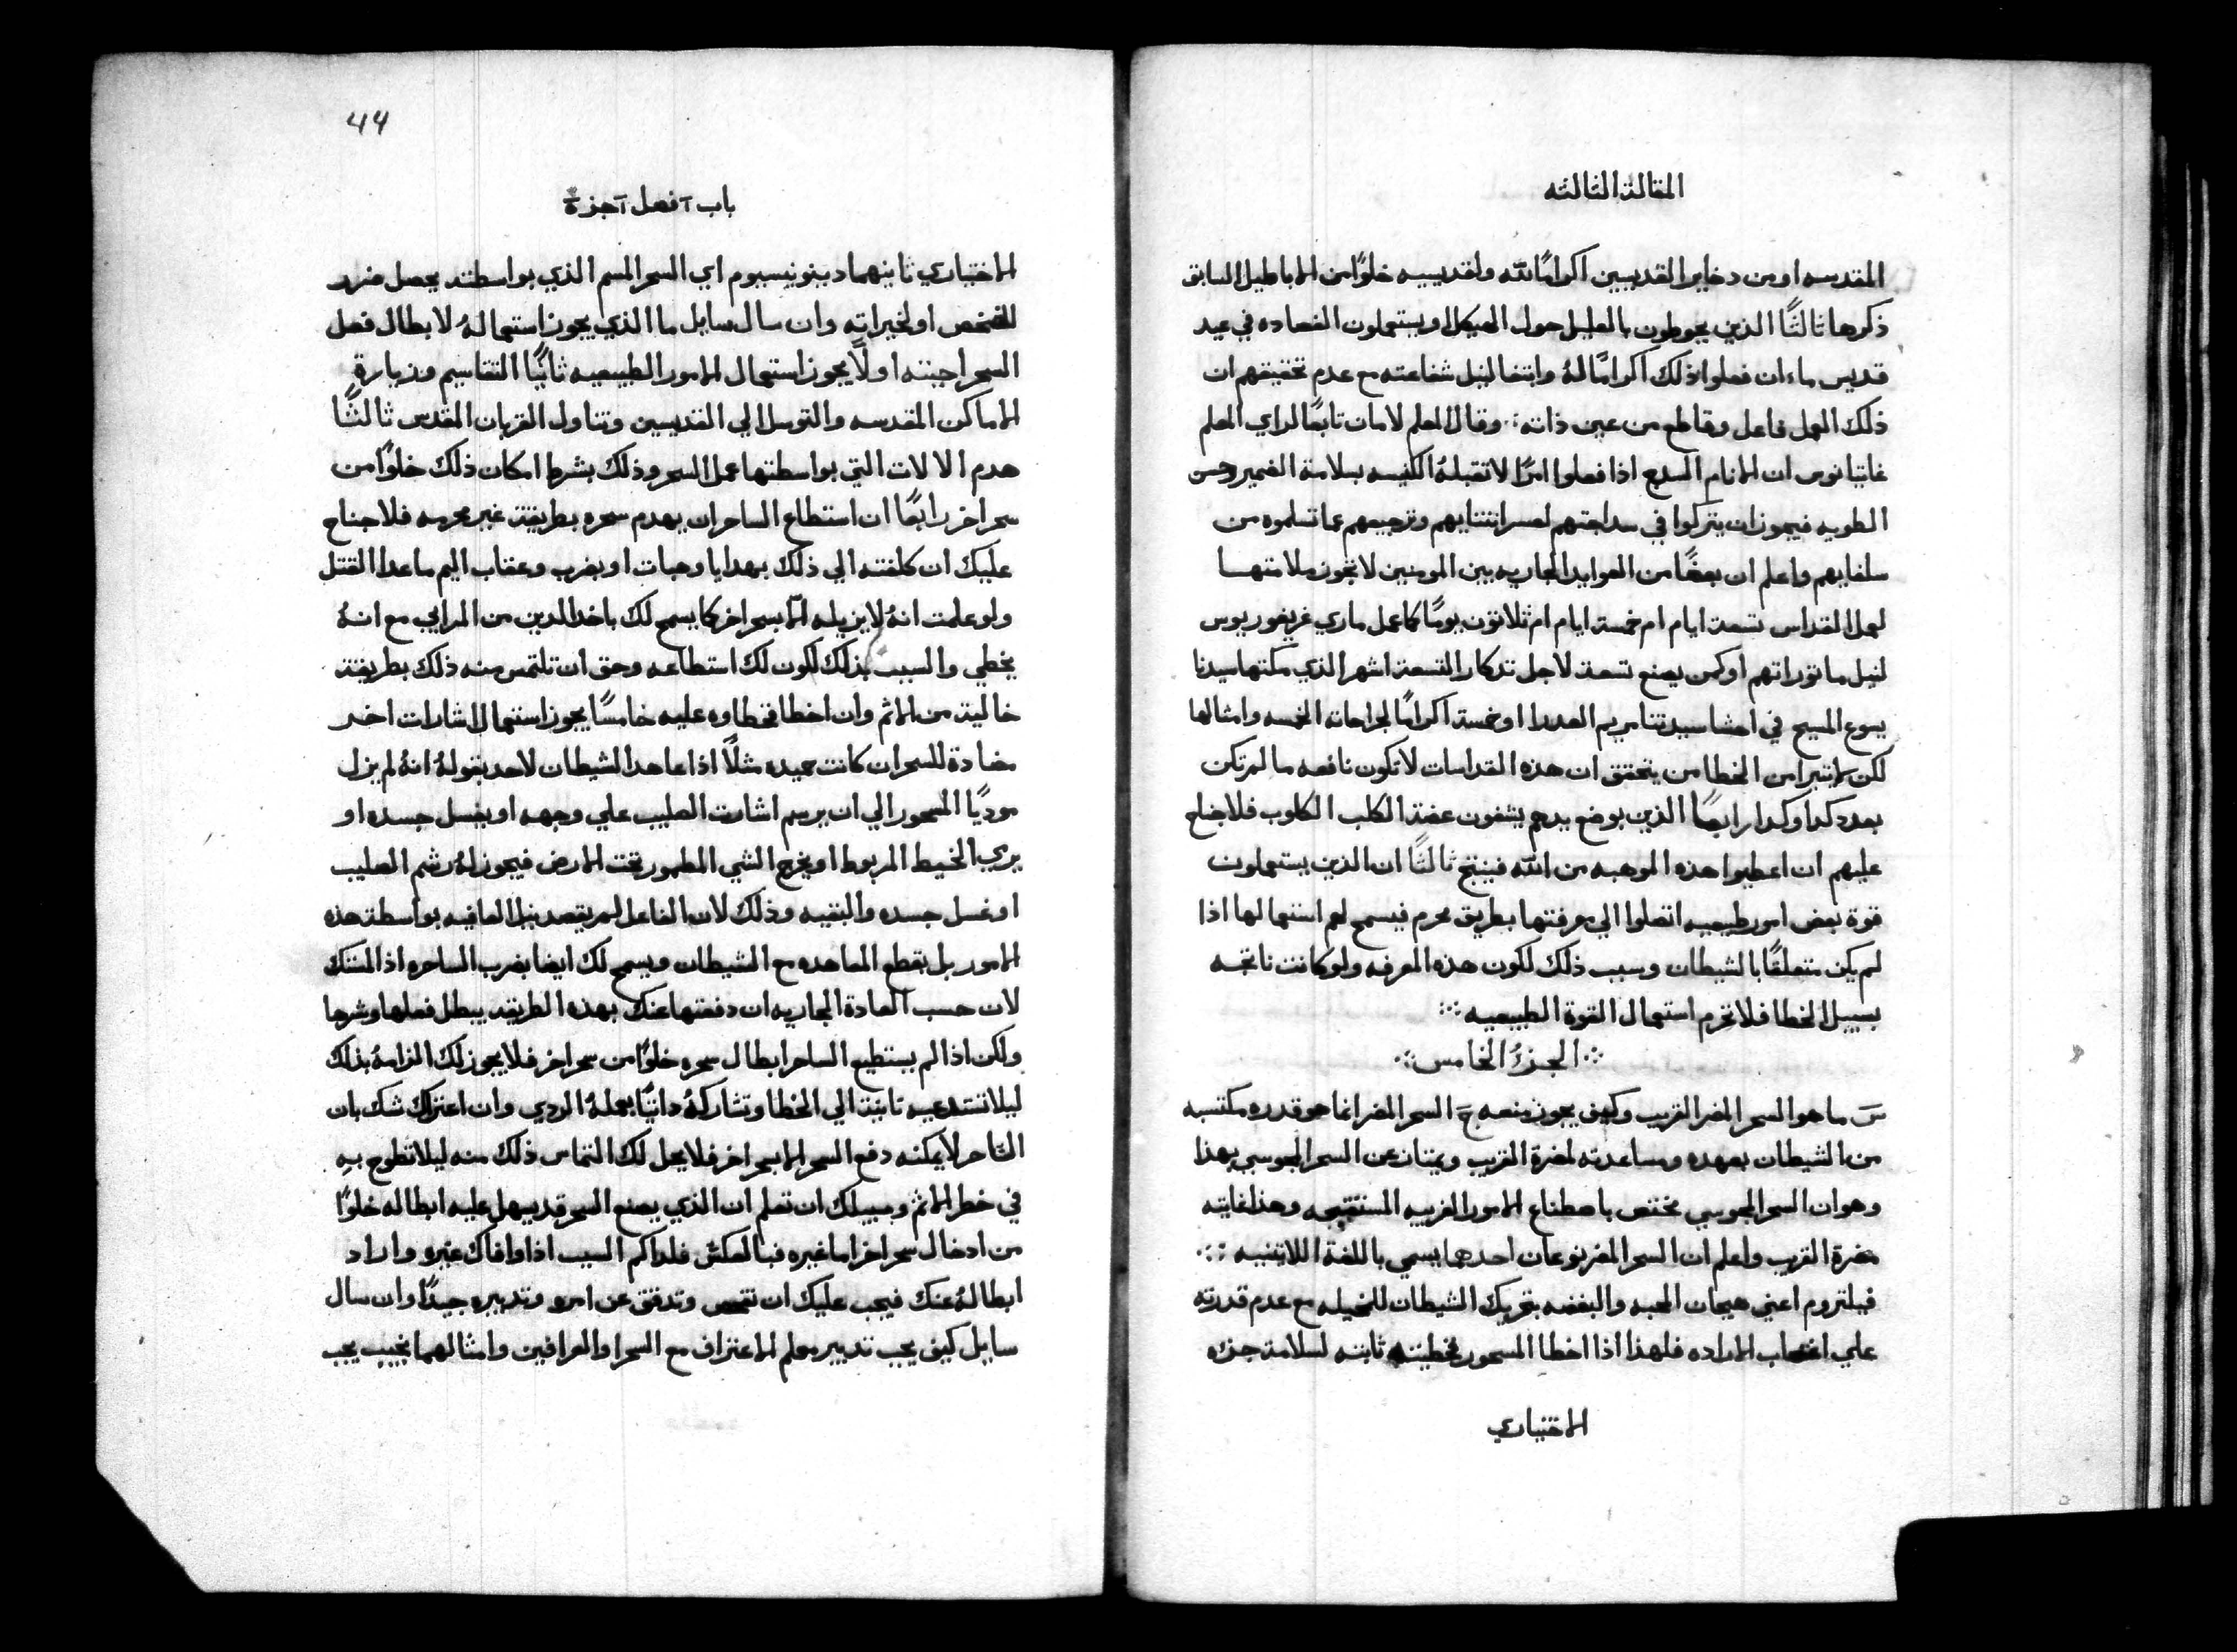 المقالة الثالثه
المقدسه او من دخاير القديسين اكرامًا لله ولقديسيه خلوًا من الاباطيل السابق
ذكرها ثالثًا الذين يحوطون بالعليل حول الهيكل او يستعملون الفصاده في عيد
قديس ماء ان فعلوا ذلك اكرامًا لهُ وابتغا لنيل شفاعته مع عدم تحقيقهم ان
ذلك العمل فاعل وقاطع من عين ذاته ؞ وقال المعلم لامان تابعًا لراي المعلم
غايتانوس ان الانام السدج اذا فعلوا امرًا لا تقبلهُ الكنيسه بسلامة الضمير وحسن
الطويه فيجوز ان يتركوا في سداجتهم لعسر انتنايهم وترجيعهم عما تسلموه من
سلفايهم واعلم ان بعضًا من العوايد الجاريه بين المومنين لا تجوز ملامتها
لعمل القداس تسعة ايام ام خمسة ايام ام ثلاثون يومًا كما عمل ماري غريغوريوس
لنيل ماثوراتهم او كمن يصنع تسعة لاجل تدكار التسعة اشهر الذي مكثها سيدنا
يسوع المسيح في احشا سيدتنا مريم العدرا او خمسة اكرامًا لجراحاته الخمسه وامثالها
لكن لا يتبرا من الخطا من يتحقق ان هذه القداسات لا تكون نافعه ما لم تكن
بعدد كدا وكدا رابعًا الذين بوضع يدهم يشفون عضة الكلب الكلوب فلا جناح
عليهم ان اعطيوا هذه الموهبه من الله فينتج ثالثًا ان الذين يستعملون
قوة بعض امور طبيعيه اتصلوا الي معرفتها بطريق محرم فيسمح لهم استعمالها اذا
لم يكن متعلقًا بالشيطان وسبب ذلك لكون هذه المعرفه ولو كانت ناتجه
بسبيل الخطا فلا تحرم استعمال القوة الطبيعيه ؞
؞ الجزءُ الخامس ؞
سَ ما هو السحر المضر القريب وكيف يجوز منعه جَ السحر المضر انما هو قدره مكتسبه
من الشيطان بعهده ومساعدته لمضرة القريب ويمتاز عن السحر المجوسي بهذا
وهو ان السحر المجوسي مختص باصطناع الامور الغريبه المستقبحه وهذا غايته
مضرة القريب واعلم ان السحر المضر نوعان احدهما يسمي باللغة اللاتنيه ؞
فيلتروم اعني هيجان المحبه والبغضه بتحريك الشيطان للمخيله مع عدم قدرته
علي اغتصاب الاراده فلهذا اذا اخطا المسحور فخطيته ثابته لسلامة جزه
الاختياري
44
باب آ فصل آ جزء ة
الاختياري ثانيهما دينونيسيوم اي السحر المسم الذي بواسطته يحصل ضرر
للشخص او لخيراته وان سال سايل ما الذي يجوز استعمالهُ لابطال فعل
السحر اجبته اولًا يجوز استعمال الامور الطبيعيه ثانيًا التقاسيم وزيارة
الاماكن المقدسه والتوسل الي القديسين وتناول القربان المقدس ثالثًا
هدم الالات التي بواسطتها عمل السحر وذلك بشرط امكان ذلك خلوًا من
سحر اخر رابعًا ان استطاع الساحر ان يهدم سحره بطريقة غير محرمه فلا جناح
عليك ان كلفته الي ذلك بهدايا وهبات او بضرب وعقاب اليم ما عدا القتل
ولو علمت انهُ لا يزيله الّا بسحر اخر كما يسمح لك باخد الدين من المرابي مع انهُ
يخطي والسبب بذلك لكون لك استطاعه وحق ان تلتمس منه ذلك بطريقة
خالية من الاثم وان اخطا فخطاوه عليه خامسًا يجوز استعمال اشارات اخر
مضادة للسحر ان كانت حميده مثلًا اذا عاهد الشيطان لاحد بقولهُ انهُ لم يزل
موديًا المسحور الي ان يرسم اشارت الصليب علي وجهه او يغسل جسده او
يري الخيط المربوط او يخرج الشي المطمور تحت الارض فيجوز لهُ رشم الصليب
او غسل جسده والبقيه وذلك لان الفاعل لم يقصد نيل العافيه بواسطة هذه
الامور بل بقطع المعاهده مع الشيطان ويسمح لك ايضا بضرب الساحره اذ المستك
لان حسب العادة الجاريه ان دفعتها عنك بهذه الطريقه يبطل فعلها وشرها
ولكن اذا لم يستطيع الساحر ابطال سحره خلوًا من سحر اخر فلا يجوز لك الزامهُ بذلك
ليلا تستدعيه ثانيةً الي الخطا وتشاركهُ داتيًا بعملهُ الردي وان اعتراك شك بان
السّاحر لا يمكنه دفع السحر الا بسحر اخر فلا يحل لك التماس ذلك منه ليلا تطوح بهِ
في خطر الاثم وسبيلك ان تعلم ان الذي يصنع السحر قد يسهل عليه ابطاله خلوًا
من ادخال سحر اخر اما غيره فبالعكس فلداكم السبب اذا وافاك غيره واراد
ابطالهُ عنك فيجب عليك ان تتفحص وتدقق عن امره وتدبيره جيدًا وان سال
سايل كيف يجب تدبير معلم الاعتراف مع السحرا والعرافين وامثالهما نجيب يجب